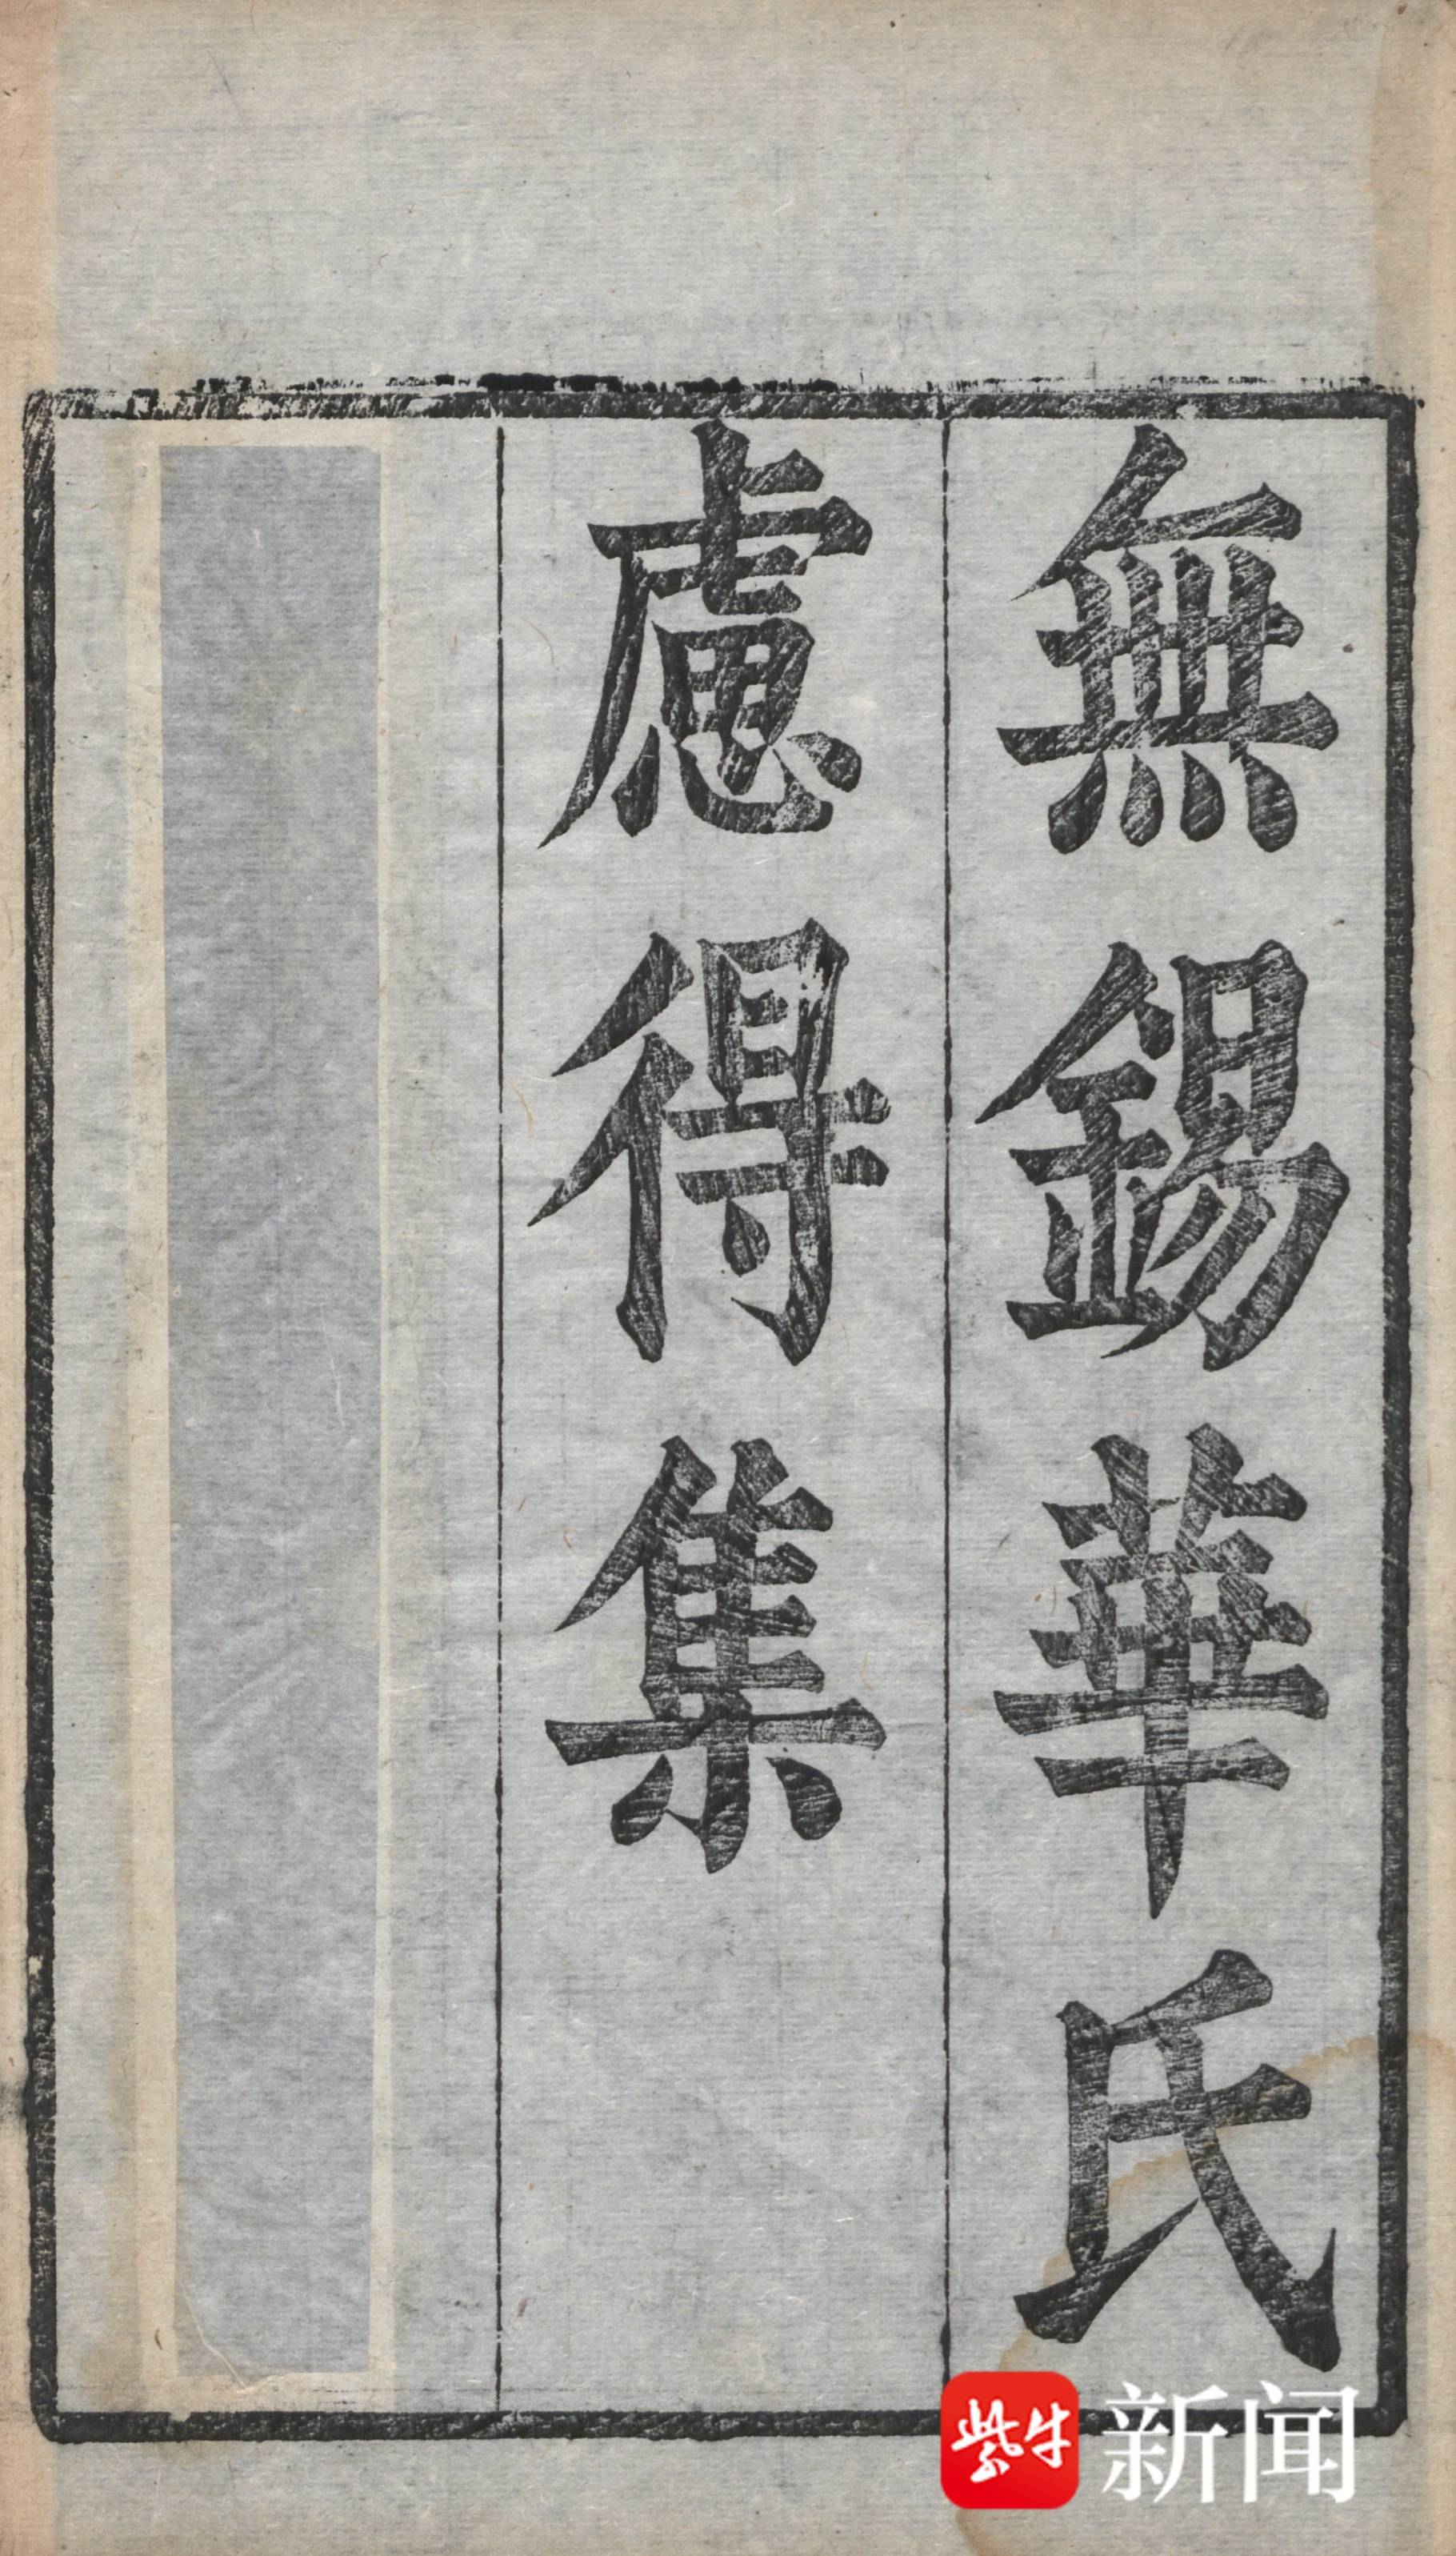 無錫華氏
慮得集
紫牛新闻